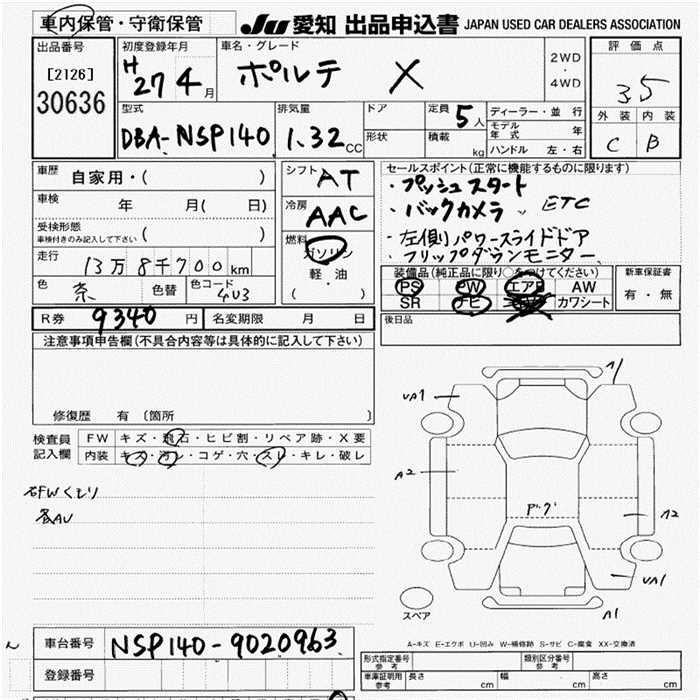 車内保管・守衛保管
JU 愛知 出品申込書 JAPAN USED CAR DEALERS ASSOCIATION
出品番号
[2126]
30636
初度登録年月
H 27 4月
車名・グレード
ポルテ X
2WD
・
4WD
評価点
3.5
外装 内装
C B
型式
DBA-NSP140
排気量
1.32CC
ドア
形状
定員 5人
積載 kg
ディーラー・並行
モデル年式 年
ハンドル 左・右
車歴 自家用・( )
車検 年 月( 日)
受検形態
車検付きのみ記入して下さい ( )
走行 13万8千700km
色 色替 色コード 4U3
シフト AT
冷房 AAC
燃料 ガソリン
軽・油
( )
セールスポイント(正常に機能するものに限ります)
・プッシュスタート
・バックカメラ ETC
・左側パワースライドドア
・フリップダウンモニター
装備品(純正品に限り○をつけてください)
PS PW エアB AW
SR ナビ カワシート
新車保証書
有・無
後日品
R券 9340円 名変期限 月 日
注意事項申告欄(不具合内容等は具体的に記入して下さい)
修復歴 有〔箇所 〕
検査員
記入欄
FW キズ・飛石・ヒビ割・リペア跡・X要
内装 キズ・汚レ・コゲ・穴・スレ・キレ・破レ
右FWくもり
各AU
UA1
A1
A2
A2
UA1
A1
スペア
A-キズ E-エクボ U-凹み W-補修跡 S-サビ C-腐食 XX-交換済
車台番号 NSP140-9020963
登録番号
形式指定番号
参考
類別区分番号
参考
車庫証明用
参考
長さ cm 幅 cm 高さ cm